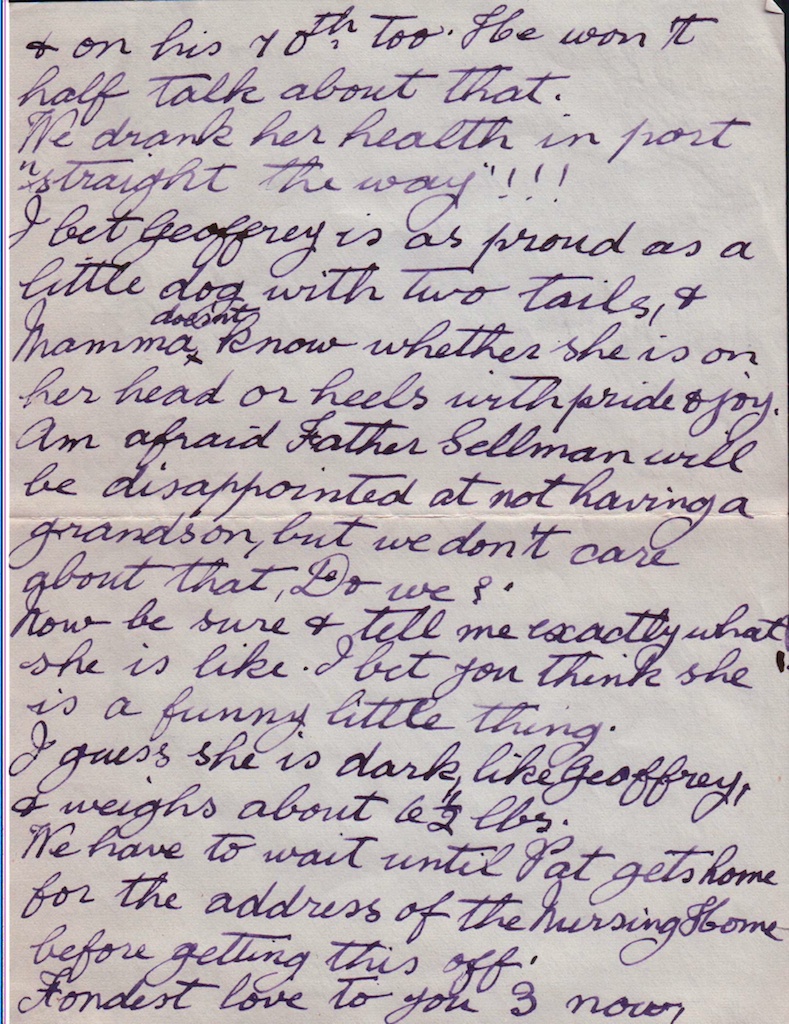 & on his 70th too. He won't
half talk about that.
We drank her health in port
"straight the way"!!!
I bet Geoffrey is as proud as a
little dog with two tails, &
Mamma doesnt know whether she is on
her head or heels with pride & joy.
Am afraid Father Sellman will
be disappointed at not having a
grandson, but we don't care
about that, Do we?
Now be sure & tell me exactly what
she is like. I bet you think she
is a funny little thing.
I guess she is dark, like Geoffrey,
& weighs about 6½ lbs.
We have to wait until Pat gets home
for the address of the Nursing Home
before getting this off.
Fondest love to you 3 now,